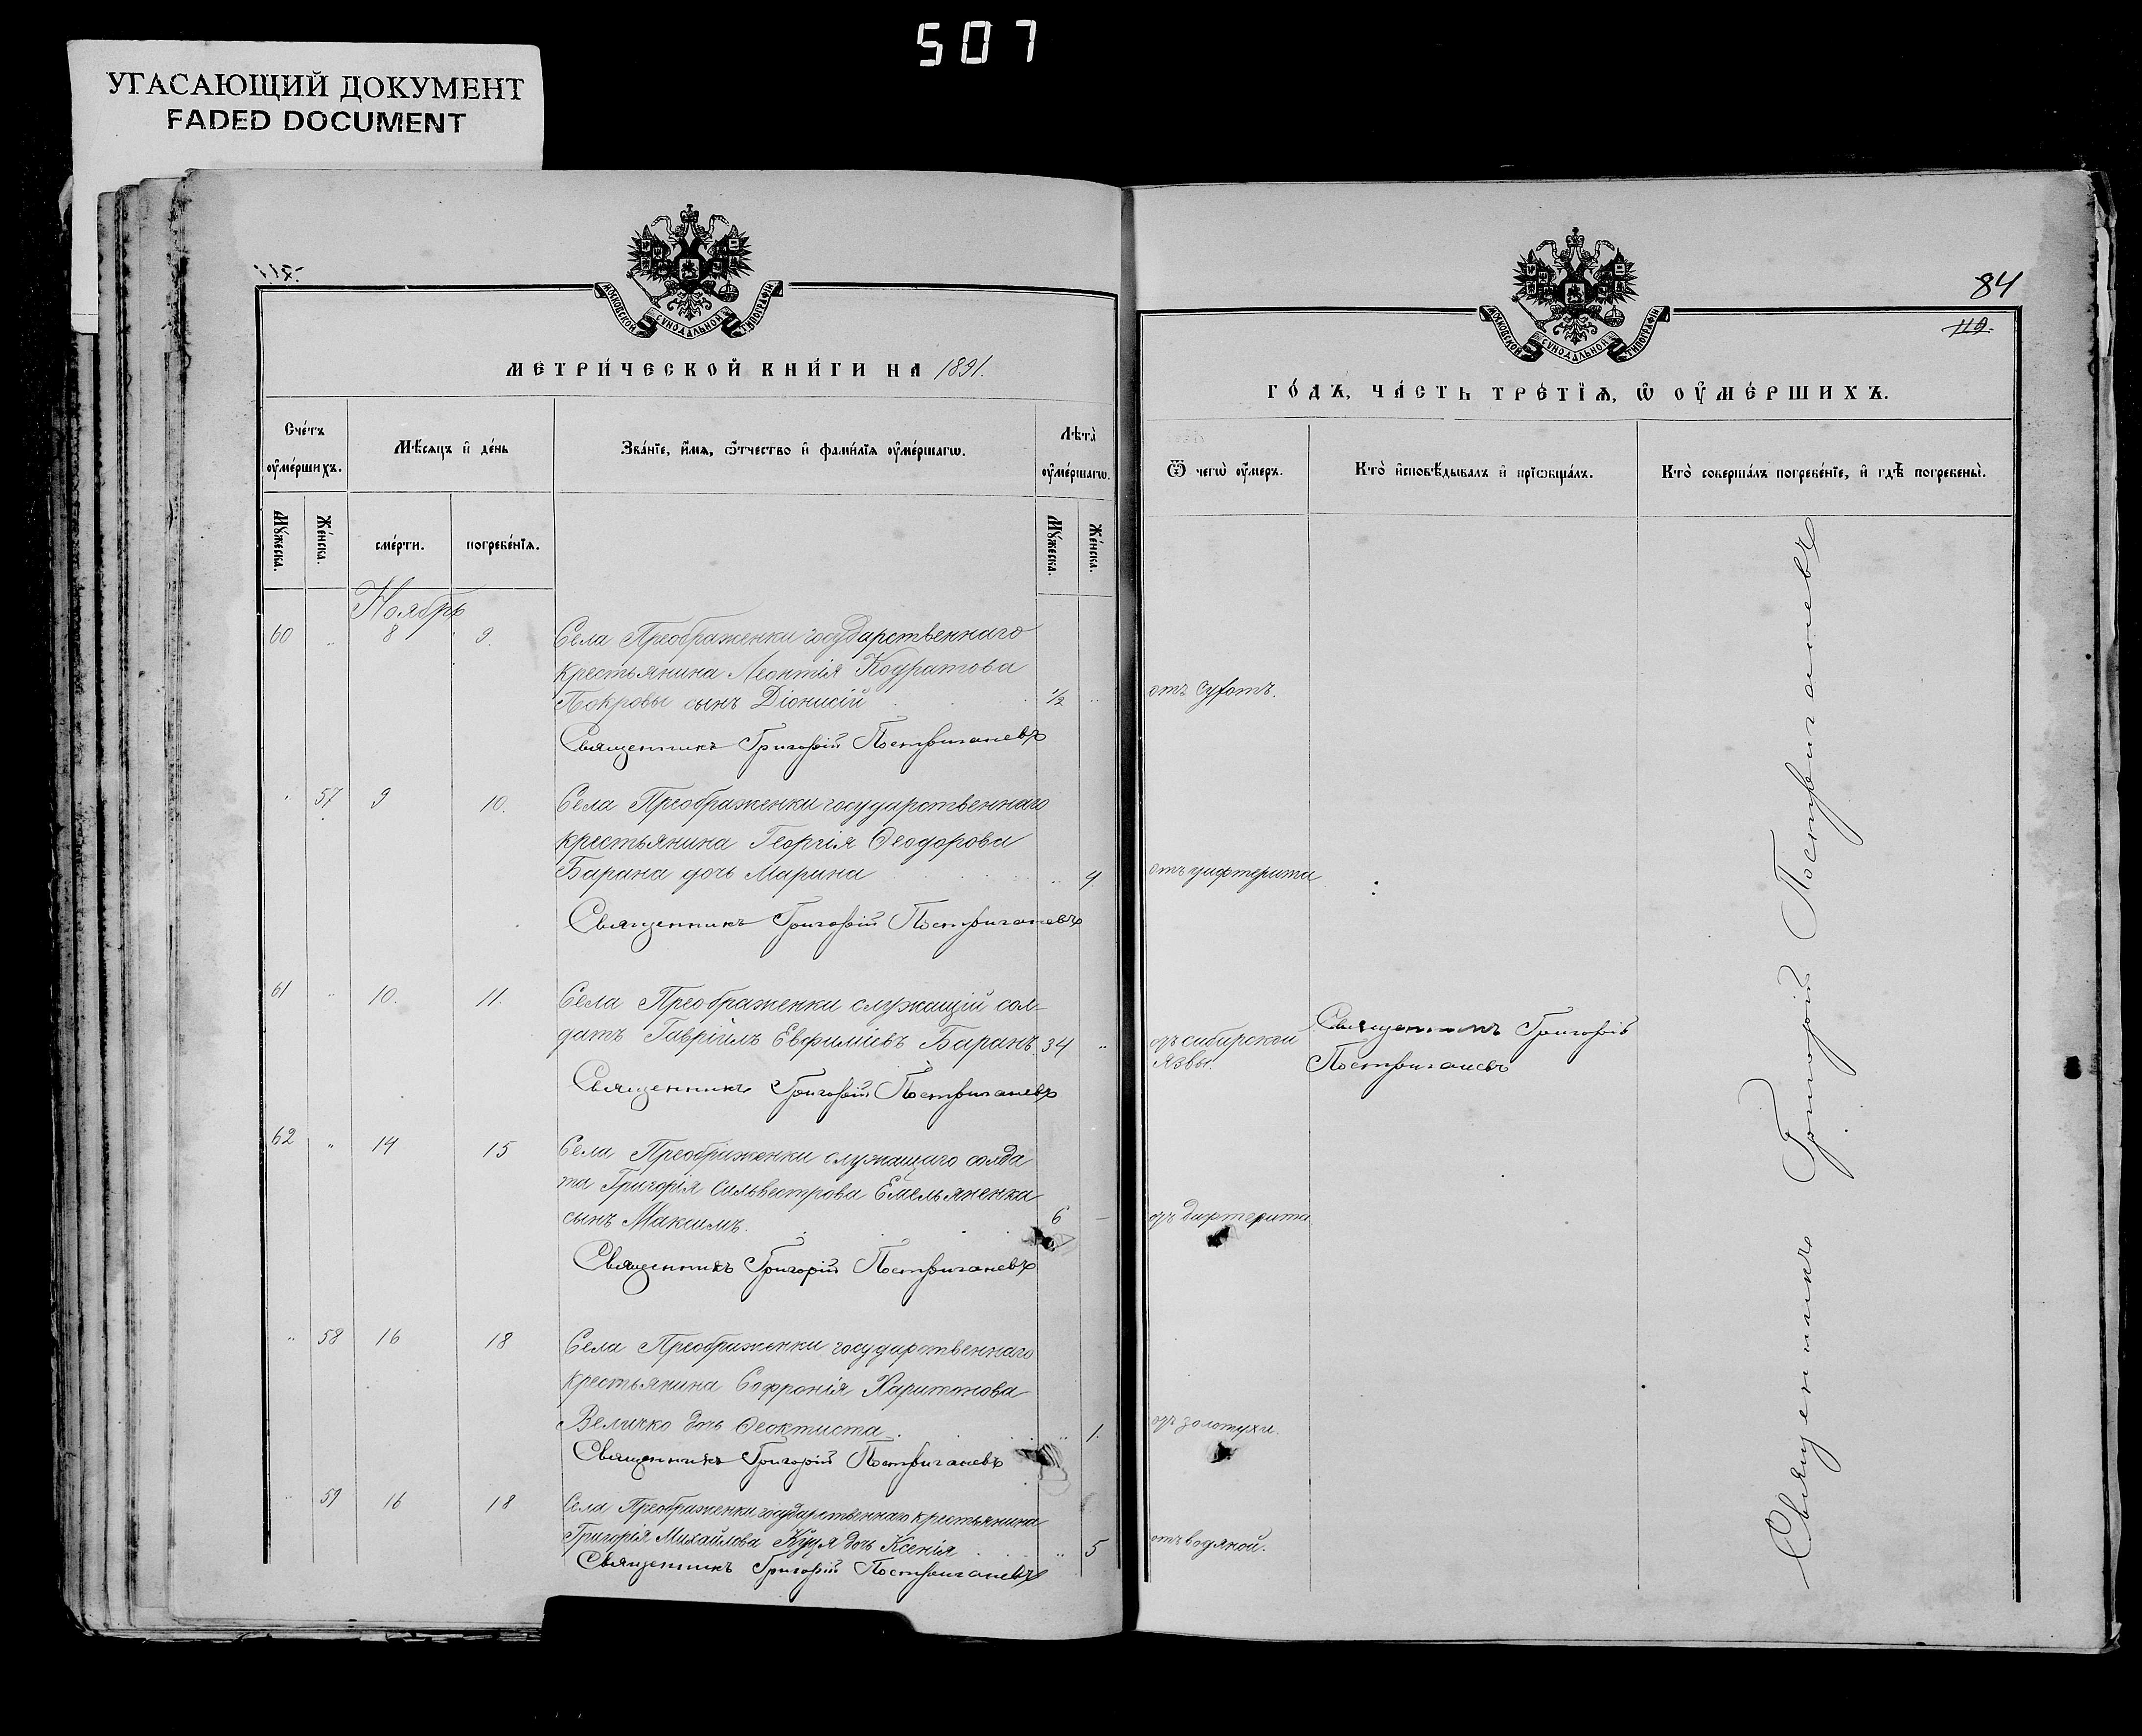 507
УГАСАЮЩИЙ ДОКУМЕНТ
FADED DOCUMENT
МОСКОВСКОЙ СѴНОДАЛЬНОЙ ТИПОГРАФІИ
МЕТРИ́ЧЕСКОЙ КНИ́ГИ НА 1891.
Счётъ оу҆ме́ршихъ.
Мѣ́сяцъ и҆ де́нь
Зва́нїе, и҆́мѧ, ѻ҆́тчество и҆ фами́лїѧ оу҆ме́ршагѡ.
Лѣта̀ оу҆ме́ршагѡ.
Мꙋ́жеска.
Же́нска.
сме́рти.
погребе́нїѧ.
Мꙋ́жеска.
Же́нска.
Ноябрь
60 " 8 9. Села Преображенки государственнаго
крестьянина Леонтія Кодратова
Покровы сынъ Діонисій 1/2 "
Священникъ Григорій Постриганевъ
" 57 9 10. Села Преображенки государственнаго
крестьянина Георгія Ѳеодорова
Барана дочь Марина " 4
Священникъ Григорій Постриганевъ
61 " 10. 11. Села Преображенки служащій сол-
датъ Гавріилъ Евфиміевъ Баранъ 34 "
Священникъ Григорій Постриганевъ
62 " 14 15 Села Преображенки служащаго солда
та Григорія Сильвестрова Емельяненка
сынъ Максимъ. 6 -
Священникъ Григорій Постриганевъ
" 58 16 18 Села Преображенки государственнаго
крестьянина Софронія Харитонова
Величко дочь Ѳеоктиста. " 1.
Священникъ Григорій Постриганевъ
" 59 16 18 Села Преображенки государственнаго крестьянина
Григорія Михайлова дочь Ксенія " 5
Священникъ Григорій Постриганевъ
84
119.
МОСКОВСКОЙ СѴНОДАЛЬНОЙ ТИПОГРАФІИ
ГО́ДЪ, ЧА́СТЬ ТРЕ́ТЇѦ, Ѡ҆ ОУ҆МЕ́РШИХЪ.
Ѿ чегѡ̀ оу҆́меръ.
Кто̀ и҆сповѣ́дывалъ и҆ прїѡбща́лъ.
Кто̀ соверша́лъ погребе́нїе, и҆ гдѣ̀ погребены̀.
отъ
отъ дифтерита
отъ сибирской
язвы.
Священникъ Григорій
Постриганевъ
отъ дифтерита
отъ золотухи.
отъ водяной.
Священникъ Григорій Постриганевъ